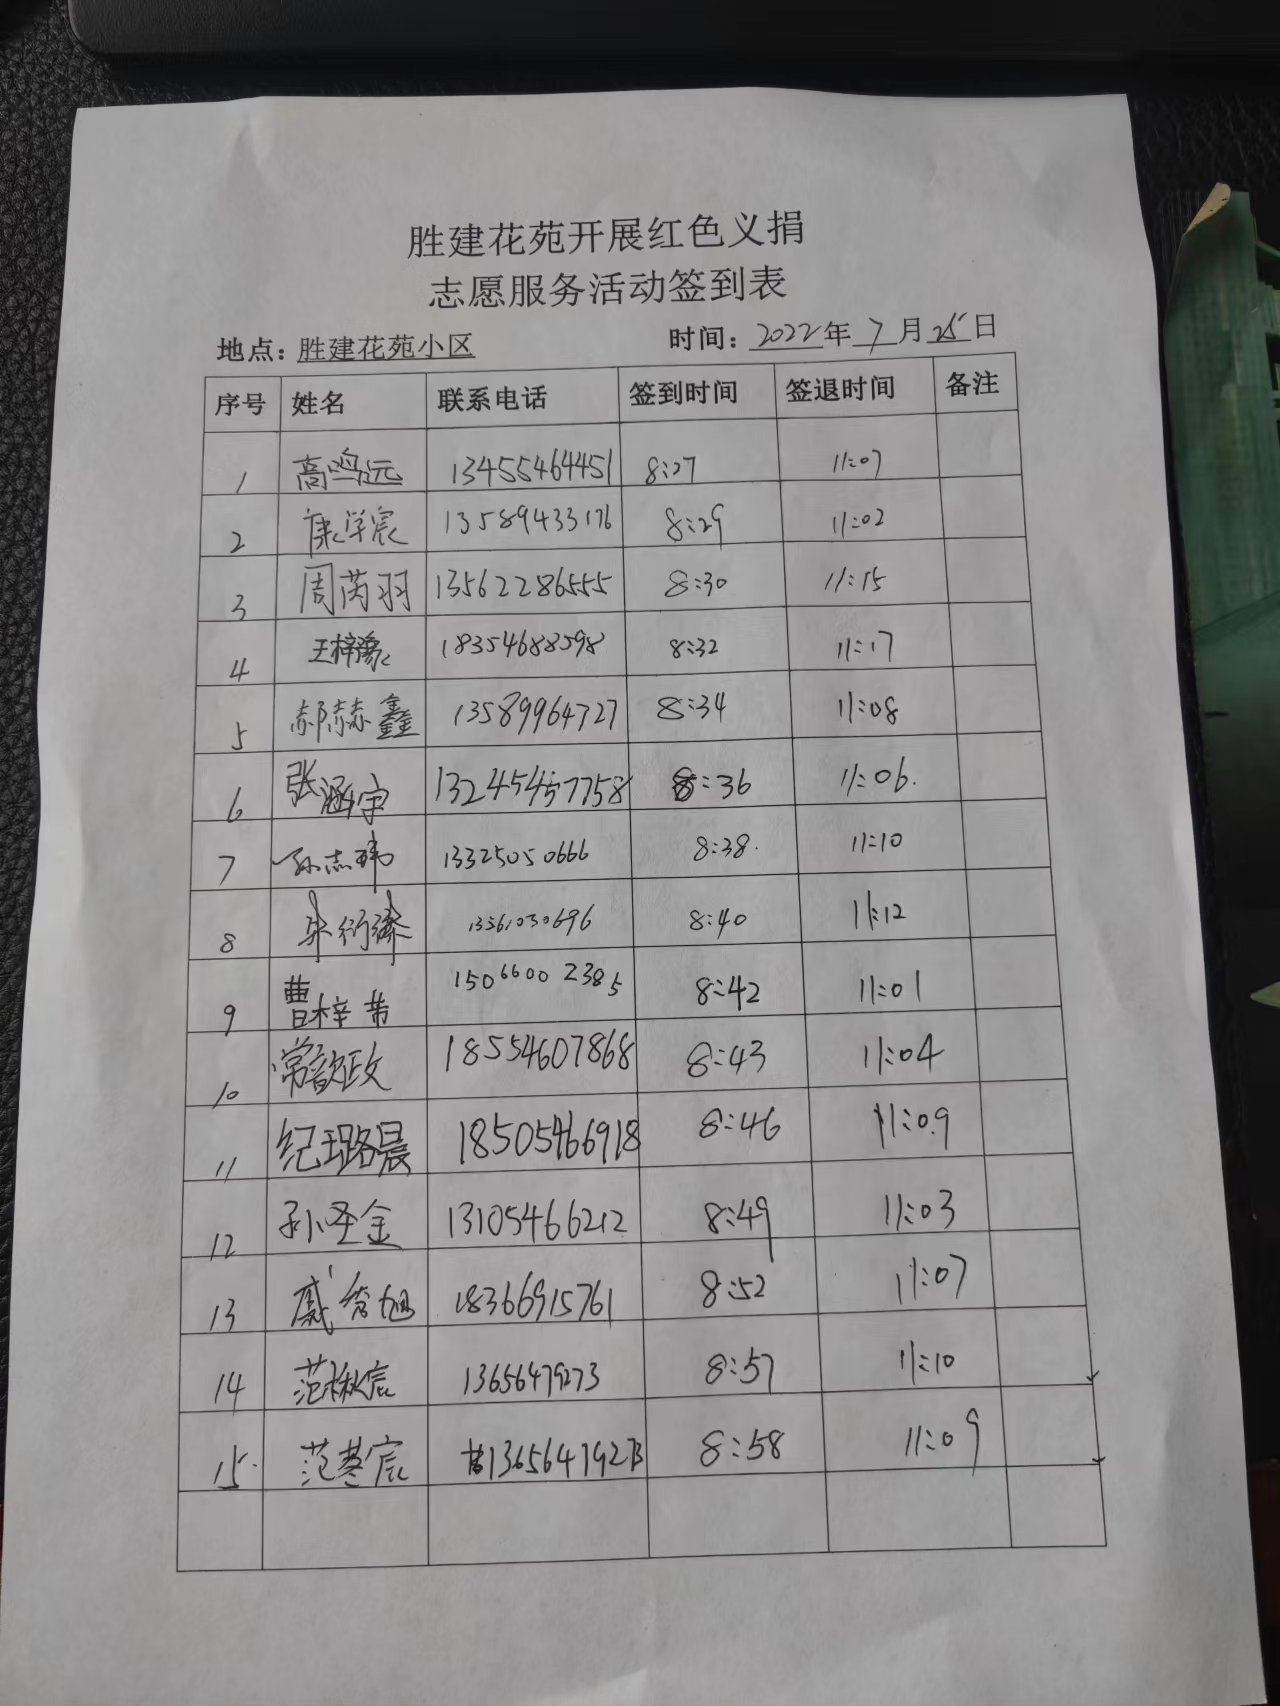 胜建花苑开展红色义捐
志愿服务活动签到表
地点：胜建花苑小区 时间：2022年7月25日
序号 姓名 联系电话 签到时间 签退时间 备注
1 高鸣远 13455464451 8:27 11:07
2 康学宸 13589433176 8:29 11:02
3 周芮羽 13562286555 8:30 11:15
4 王梓豪 18354688598 8:32 11:17
5 郝赫鑫 13589964727 8:34 11:08
6 张涵宇 13245457758 8:36 11:06.
7 孙志玮 13325050666 8:38. 11:10
8 13561030696 8:40 11:12
9 曹梓芾 15066002385 8:42 11:01
10 常歆政 18554607868 8:43 11:04
11 纪璐晨 18505466918 8:46 11:09
12 孙圣金 13105466212 8:49 11:03
13 18366915761 8:52 11:07
14 范楸宸 13656479273 8:57 11:10
15. 13656479273 8:58 11:09